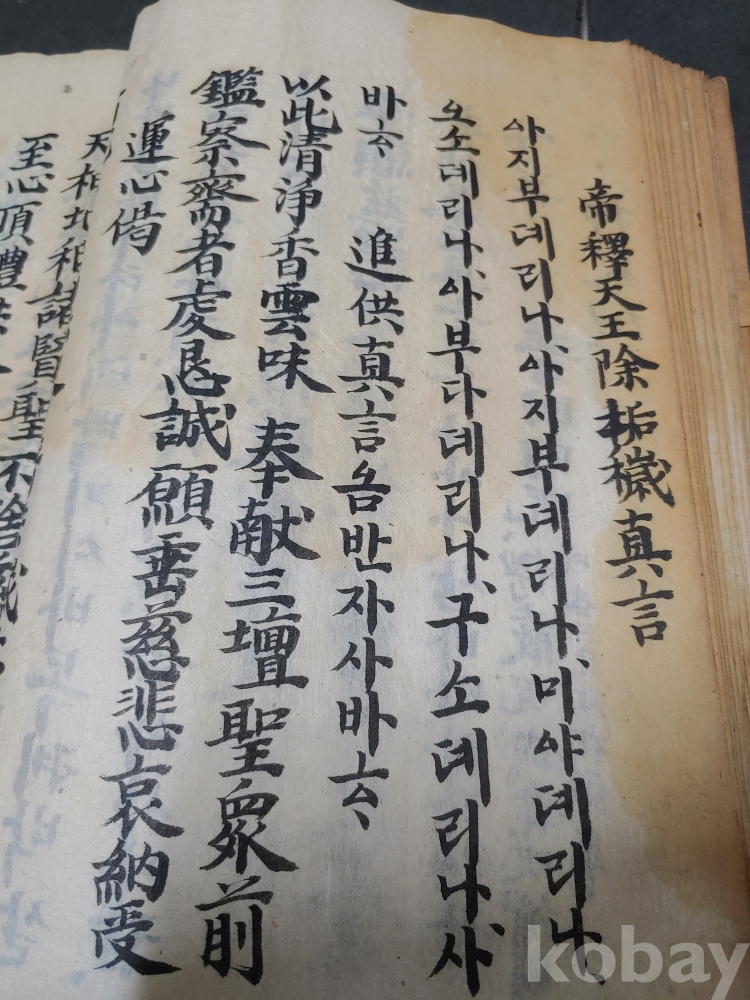 帝釋天王除垢穢真言
아지부데리나、아지부데리나、미아데리나、
오소데리나、아부다데리나、구소데리나、사
바하、 進供真言옴반자사바하、
以此清淨香雲味 奉献三壇聖衆前
鑑察齋者虔恳誠願垂慈悲哀納受
運心偈
至心頂禮供
kobay